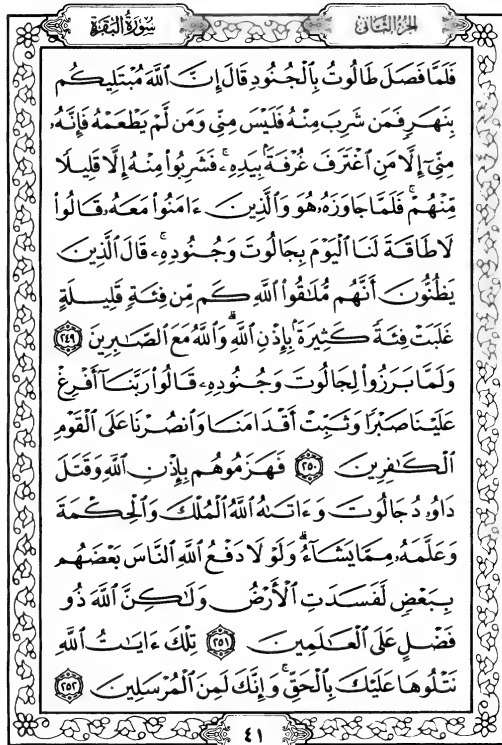 سُورَةُ البَقَرَةِ
الجزء الثاني
فَلَمَّا فَصَلَ طَالُوتُ بِٱلْجُنُودِ قَالَ إِنَّ ٱللَّهَ مُبْتَلِيكُم
بِنَهَرٍ فَمَن شَرِبَ مِنْهُ فَلَيْسَ مِنِّى وَمَن لَّمْ يَطْعَمْهُ فَإِنَّهُۥ
مِنِّىٓ إِلَّا مَنِ ٱغْتَرَفَ غُرْفَةًۢ بِيَدِهِۦۚ فَشَرِبُوا۟ مِنْهُ إِلَّا قَلِيلًا
مِّنْهُمْۚ فَلَمَّا جَاوَزَهُۥ هُوَ وَٱلَّذِينَ ءَامَنُوا۟ مَعَهُۥ قَالُوا۟
لَا طَاقَةَ لَنَا ٱلْيَوْمَ بِجَالُوتَ وَجُنُودِهِۦۚ قَالَ ٱلَّذِينَ
يَظُنُّونَ أَنَّهُم مُّلَٰقُوا۟ ٱللَّهِ كَم مِّن فِئَةٍ قَلِيلَةٍ
غَلَبَتْ فِئَةً كَثِيرَةًۢ بِإِذْنِ ٱللَّهِۗ وَٱللَّهُ مَعَ ٱلصَّٰبِرِينَ ٢٤٩
وَلَمَّا بَرَزُوا۟ لِجَالُوتَ وَجُنُودِهِۦ قَالُوا۟ رَبَّنَآ أَفْرِغْ
عَلَيْنَا صَبْرًا وَثَبِّتْ أَقْدَامَنَا وَٱنصُرْنَا عَلَى ٱلْقَوْمِ
ٱلْكَٰفِرِينَ ٢٥٠ فَهَزَمُوهُم بِإِذْنِ ٱللَّهِ وَقَتَلَ
دَاوُۥدُ جَالُوتَ وَءَاتَىٰهُ ٱللَّهُ ٱلْمُلْكَ وَٱلْحِكْمَةَ
وَعَلَّمَهُۥ مِمَّا يَشَآءُۗ وَلَوْلَا دَفْعُ ٱللَّهِ ٱلنَّاسَ بَعْضَهُم
بِبَعْضٍ لَّفَسَدَتِ ٱلْأَرْضُ وَلَٰكِنَّ ٱللَّهَ ذُو
فَضْلٍ عَلَى ٱلْعَٰلَمِينَ ٢٥١ تِلْكَ ءَايَٰتُ ٱللَّهِ
نَتْلُوهَا عَلَيْكَ بِٱلْحَقِّۚ وَإِنَّكَ لَمِنَ ٱلْمُرْسَلِينَ ٢٥٢
٤١